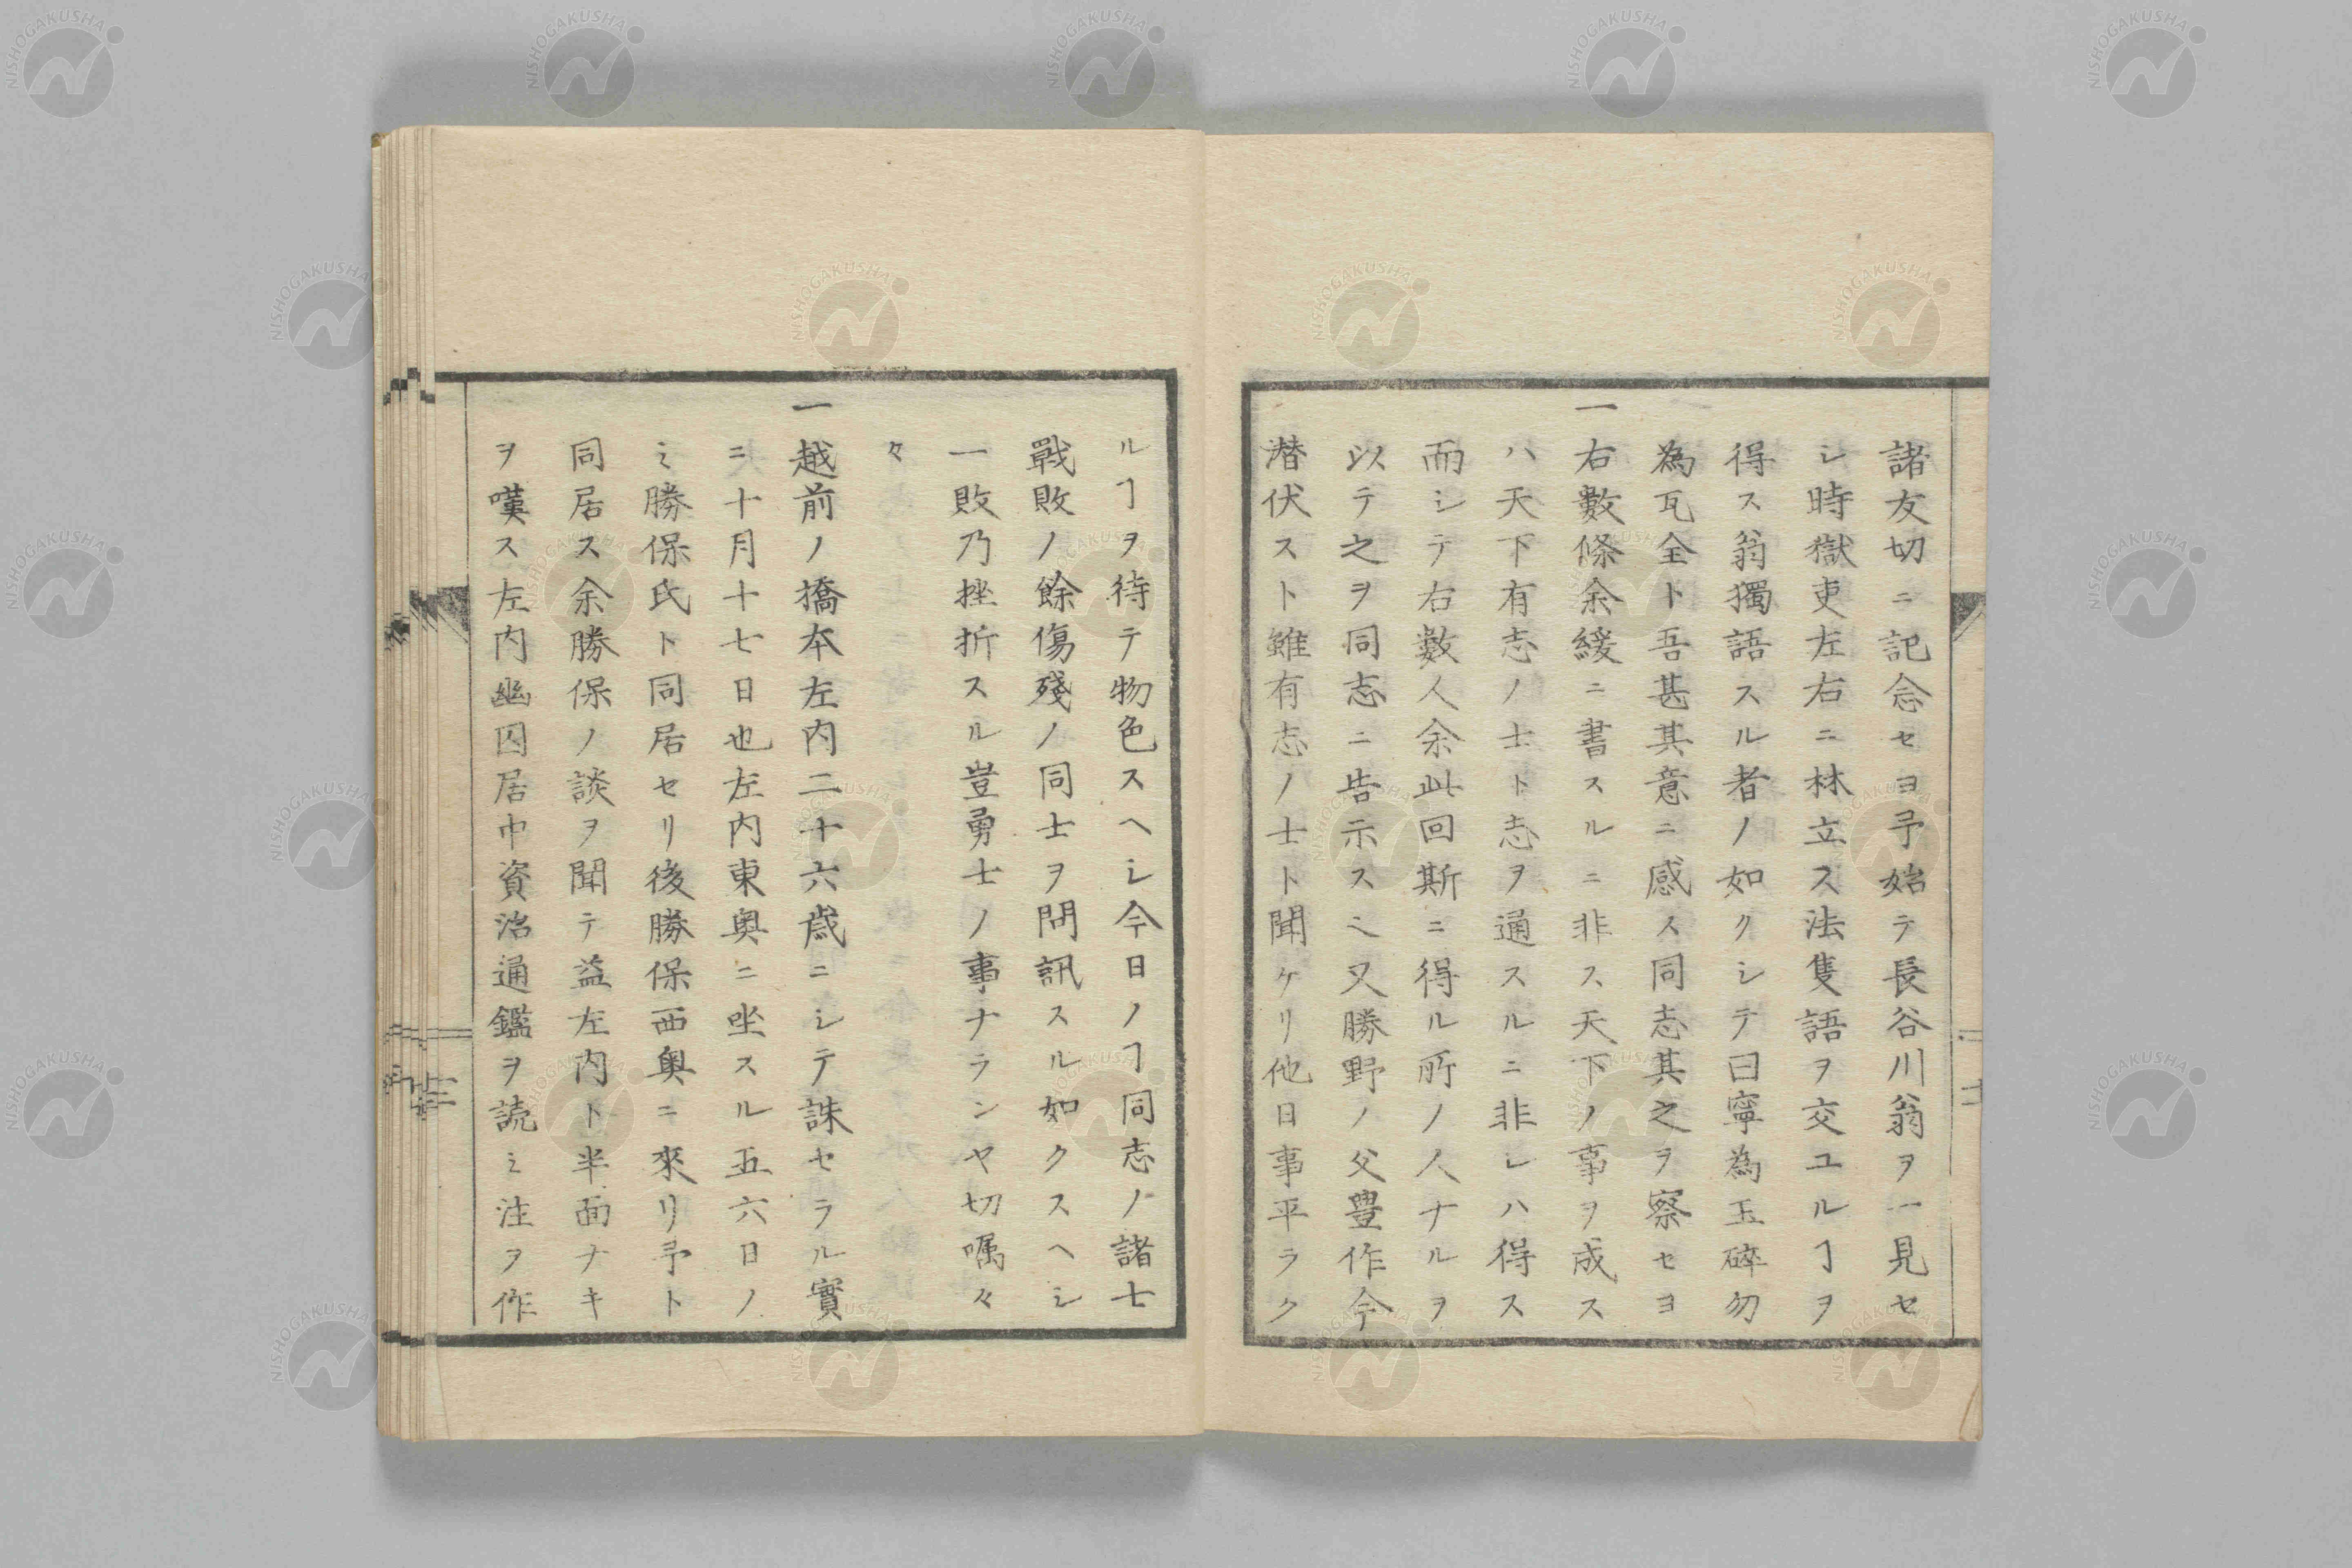 諸友切ニ記念セヨ予始テ長谷川翁ヲ一見セ
シ時獄吏左右ニ林立ス法隻語ヲ交ユルヿヲ
得ス翁獨語スル者ノ如クシテ曰寧為玉碎勿
為瓦全ト吾甚其意ニ感ス同志其之ヲ察セヨ
一右數條余緩ニ書スルニ非ス天下ノ事ヲ成ス
ハ天下有志ノ士ト志ヲ通スルニ非レハ得ス
而シテ右數人余此回斯ニ得ル所ノ人ナルヲ
以テ之ヲ同志ニ告示スヘ又勝野ノ父豊作今
潜伏スト雖有志ノ士ト聞ケリ他日事平ラク
ルヿヲ待テ物色スヘシ今日ノヿ同志ノ諸士
戰敗ノ餘傷殘ノ同士ヲ問訊スル如クスヘシ
一敗乃挫折スル豈勇士ノ事ナランヤ切囑々
々
一越前ノ橋本左内二十六歳ニシテ誅セラル實
ニ十月十七日也左内東奥ニ坐スル五六日ノ
ミ勝保氏ト同居セリ後勝保西奥ニ來リ予ト
同居ス余勝保ノ談ヲ聞テ益左内ト半面ナキ
ヲ嘆ス左内幽囚居中資治通鑑ヲ読ミ注ヲ作
NISHOGAKUSHA